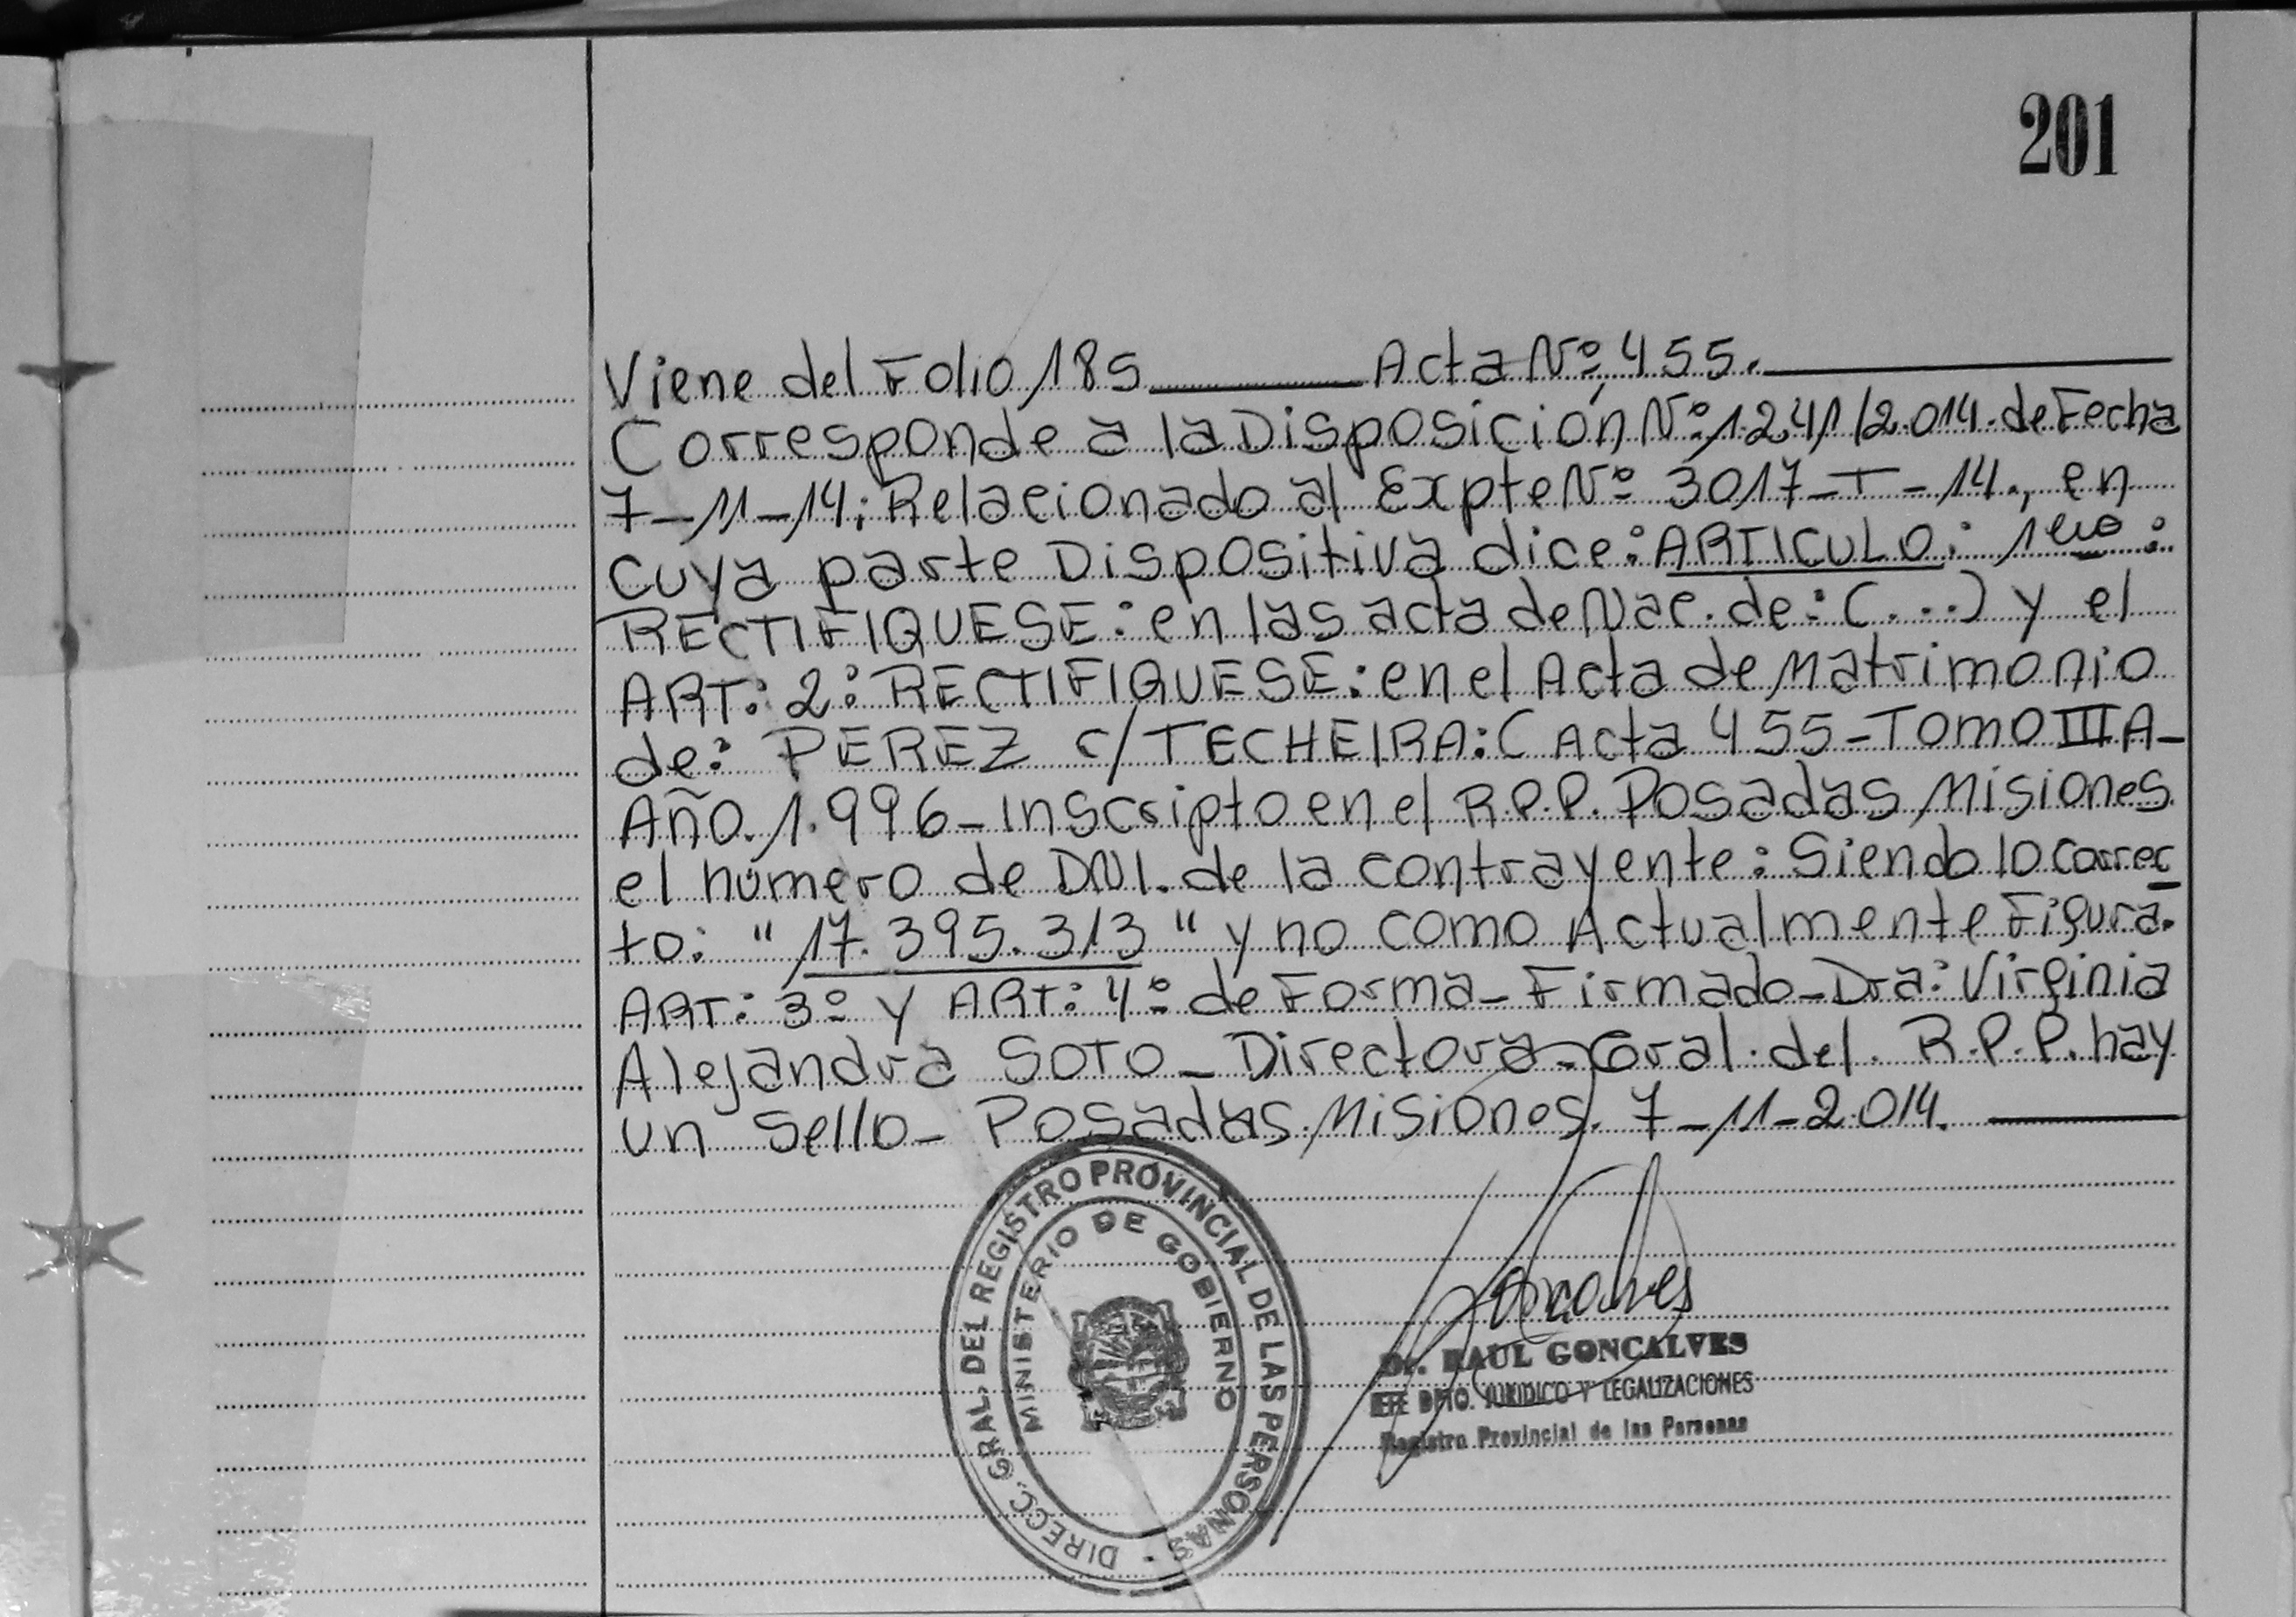 201
Viene del Folio 185 Acta Nº: 455.
Corresponde a la Disposición Nº: 1.241/2.014. de Fecha
7-11-14; Relacionado al Expte Nº 3017-T-14., en
cuya parte Dispositiva dice: ARTICULO: 1ero:
RECTIFIQUESE: en las acta de Nac. de: (...) y el
ART: 2: RECTIFIQUESE: en el Acta de Matrimonio
de: PEREZ c/ TECHEIRA: (Acta 455-Tomo III A-
Año. 1.996- Inscripto en el R.P.P. Posadas Misiones
el número de DNI. de la contrayente: Siendo lo correc
to: "17.395.313" y no como Actualmente Figura.
ART: 3º y ART: 4º de Forma- Firmado- Dra: Virginia
Alejandra SOTO- Directora Gral. del R.P.P. hay
un Sello- Posadas. Misiones. 7-11-2.014.
DIRECC. GRAL. DEL REGISTRO PROVINCIAL DE LAS PERSONAS -
MINISTERIO DE GOBIERNO
Goncalves
Dr. RAUL GONCALVES
JEFE DPTO. JURIDICO Y LEGALIZACIONES
Registro Provincial de las Personas